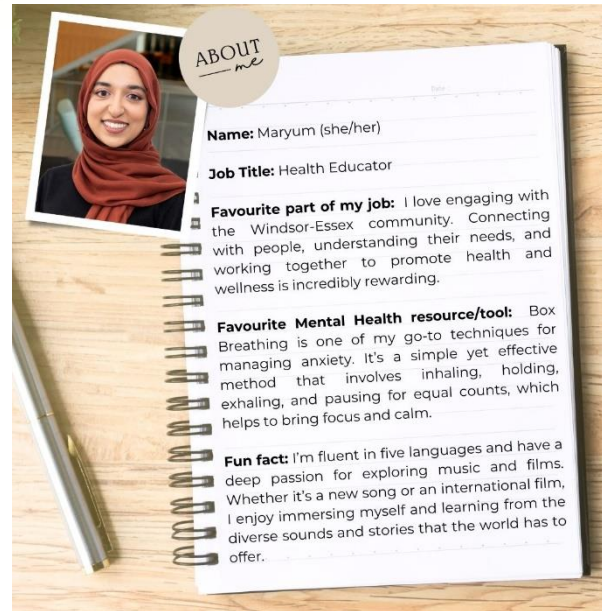 ABOUT
me
Date :
Name: Maryum (she/her)
Job Title: Health Educator
Favourite part of my job: I love engaging with
the Windsor-Essex community. Connecting
with people, understanding their needs, and
working together to promote health and
wellness is incredibly rewarding.
Favourite Mental Health resource/tool: Box
Breathing is one of my go-to techniques for
managing anxiety. It's a simple yet effective
method that involves inhaling, holding,
exhaling, and pausing for equal counts, which
helps to bring focus and calm.
Fun fact: I'm fluent in five languages and have a
deep passion for exploring music and films.
Whether it's a new song or an international film,
I enjoy immersing myself and learning from the
diverse sounds and stories that the world has to
offer.